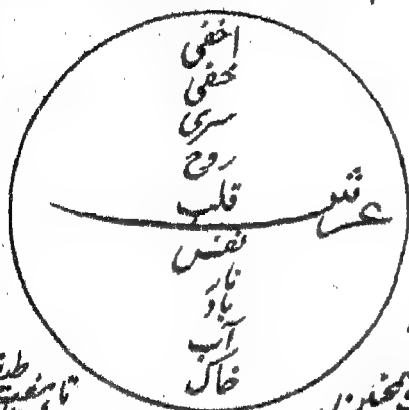 اخفی
خفی
سری
روح
قلب
عرش
نفس
نار
باد
آب
خاک